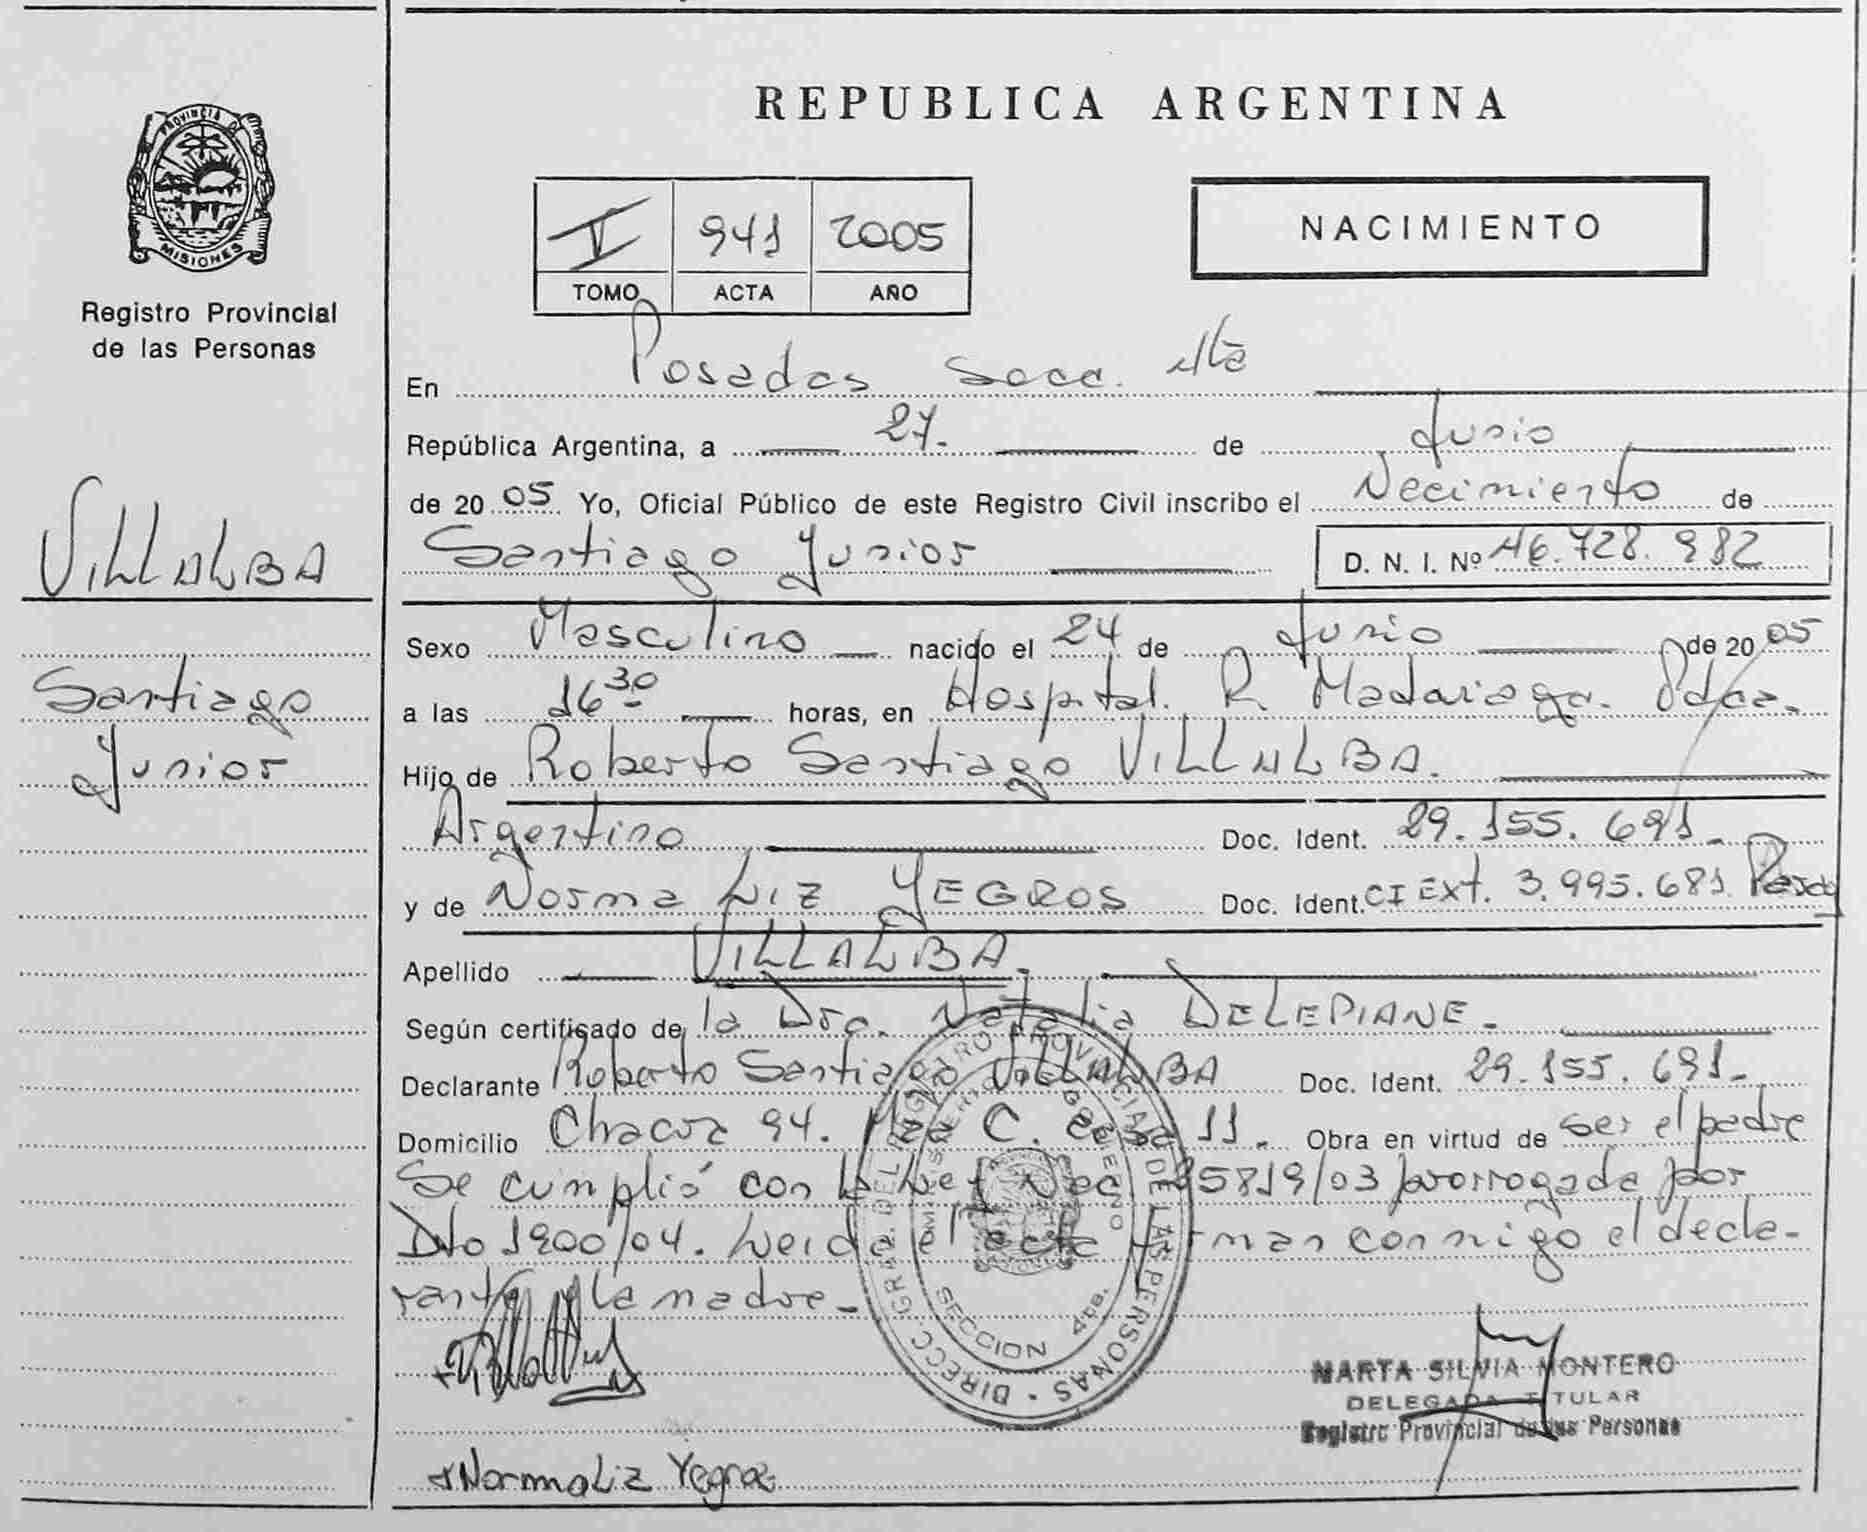 REPUBLICA ARGENTINA
PROVINCIA DE
MISIONES
Registro Provincial
de las Personas
V 941 2005
TOMO ACTA AÑO
NACIMIENTO
En Posadas Secc. 4ta
República Argentina, a 27. de Junio
de 20 05 Yo, Oficial Público de este Registro Civil inscribo el Nacimiento de
Santiago Junior D. N. I. Nº 46.728.982
VILLALBA
Santiago
Junior
Sexo Masculino nacido el 24 de Junio de 20 05
a las 16 30 horas, en Hospital. R. Madariaga. Pdas.
Hijo de Roberto Santiago VILLALBA.
Argentino Doc. Ident. 29.155.691
y de Norma Liz YEGROS Doc. Ident. CI Ext. 3.995.681
Apellido VILLALBA.
Según certificado de la Dra. Natalia DELEPIANE.
Declarante Roberto Santiago VILLALBA Doc. Ident. 29.155.691
Domicilio Chacra 94. Mza C. casa 11. Obra en virtud de ser el padre
Se cumplió con la Ley Nac 25819/03 prorrogada por
Dto 1900/04. Leida el acta firman conmigo el decla-
rante y la madre.
DIRECC. GRAL. DEL REGISTRO PROVINCIAL DE LAS PERSONAS
MINISTERIO DE GOBIERNO
SECCION 4ta.
MARTA SILVIA MONTERO
DELEGADA TITULAR
Registro Provincial de las Personas
Norma Liz Yegros